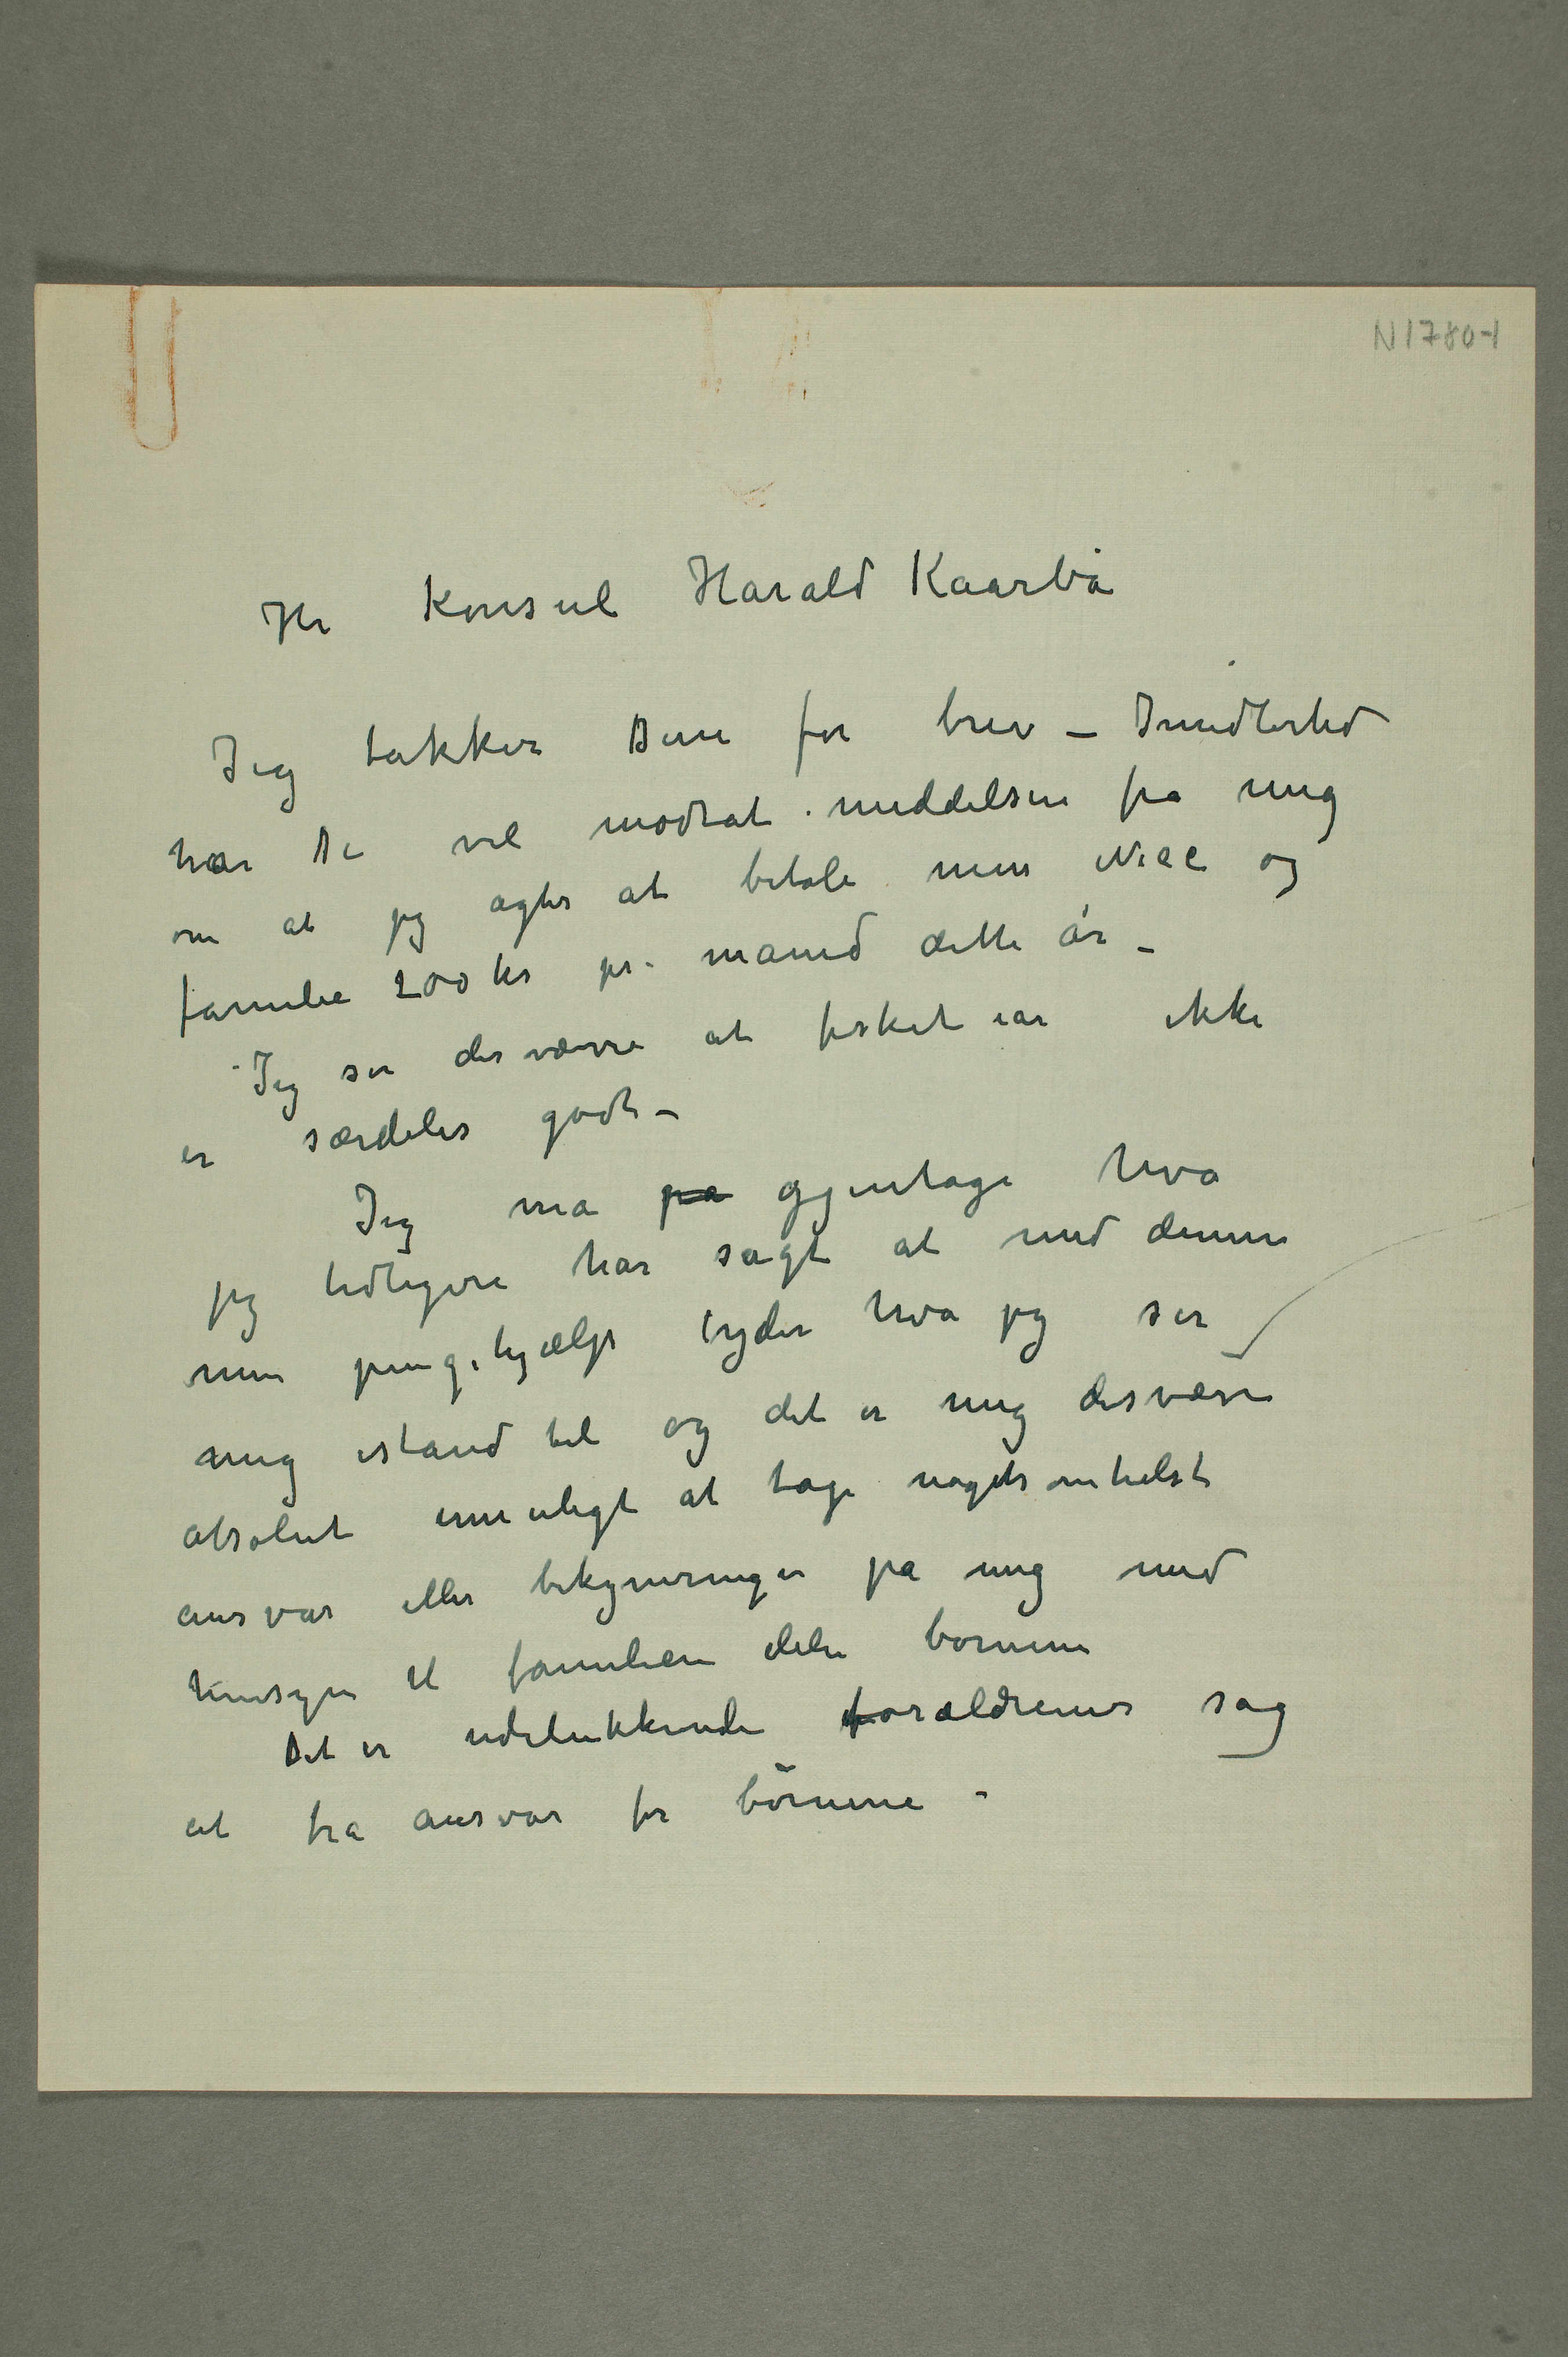 N1780-1
Hr Konsul Harald Kaarbø
Jeg takker Dem for brev – Imidlertid
har De vel modtat meddelsen fra mig
om at jeg agter at betale
familie 200 kr pr. maned dette år –
Jeg ser desværre at fisket iår ikke
er særdeles godt –
Jeg ma pa gjentage hva
jeg tidligere har sagt at med denne
min pengehjælp byder hva jeg ser
mig istand til og det er mig desværre
absolut umuligt at tage nogetsomhelst
ansvar eller bekymringer pa mig med
hinsyn til familien eller børnene
Det er udelukkende forældrenes sag
at ha ansvar for børnene –